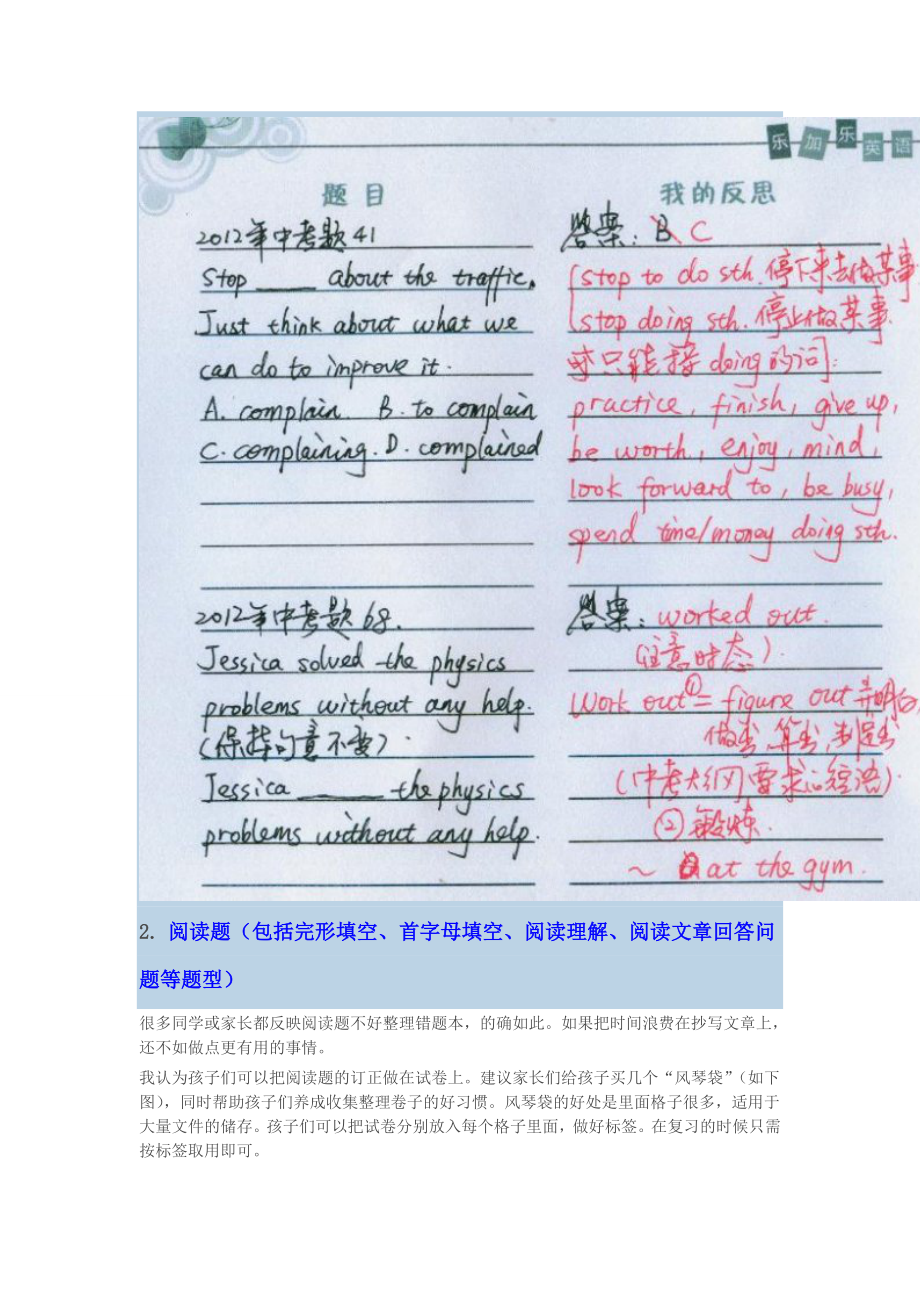 乐加乐英语
题目
我的反思
2012年中考题 41
Stop ____ about the traffic.
Just think about what we
can do to improve it.
A. complain B. to complain
C. complaining. D. complained
答案: B C
stop to do sth. 停下来去做某事
stop doing sth. 停止做某事.
只能接 doing 的词:
practice, finish, give up,
be worth, enjoy, mind,
look forward to, be busy,
spend time/money doing sth.
2012年中考题 68.
Jessica solved the physics
problems without any help.
(保持句意不变)
Jessica ______ the physics
problems without any help.
答案: worked out.
(注意时态).
Work out ① = figure out 弄明白,
做出, 算出, 制定出
(中考大纲要求的短语).
② 锻炼.
~ at the gym.
2. 阅读题（包括完形填空、首字母填空、阅读理解、阅读文章回答问
题等题型）
很多同学或家长都反映阅读题不好整理错题本，的确如此。如果把时间浪费在抄写文章上，
还不如做点更有用的事情。
我认为孩子们可以把阅读题的订正做在试卷上。建议家长们给孩子买几个“风琴袋”（如下
图），同时帮助孩子们养成收集整理卷子的好习惯。风琴袋的好处是里面格子很多，适用于
大量文件的储存。孩子们可以把试卷分别放入每个格子里面，做好标签。在复习的时候只需
按标签取用即可。